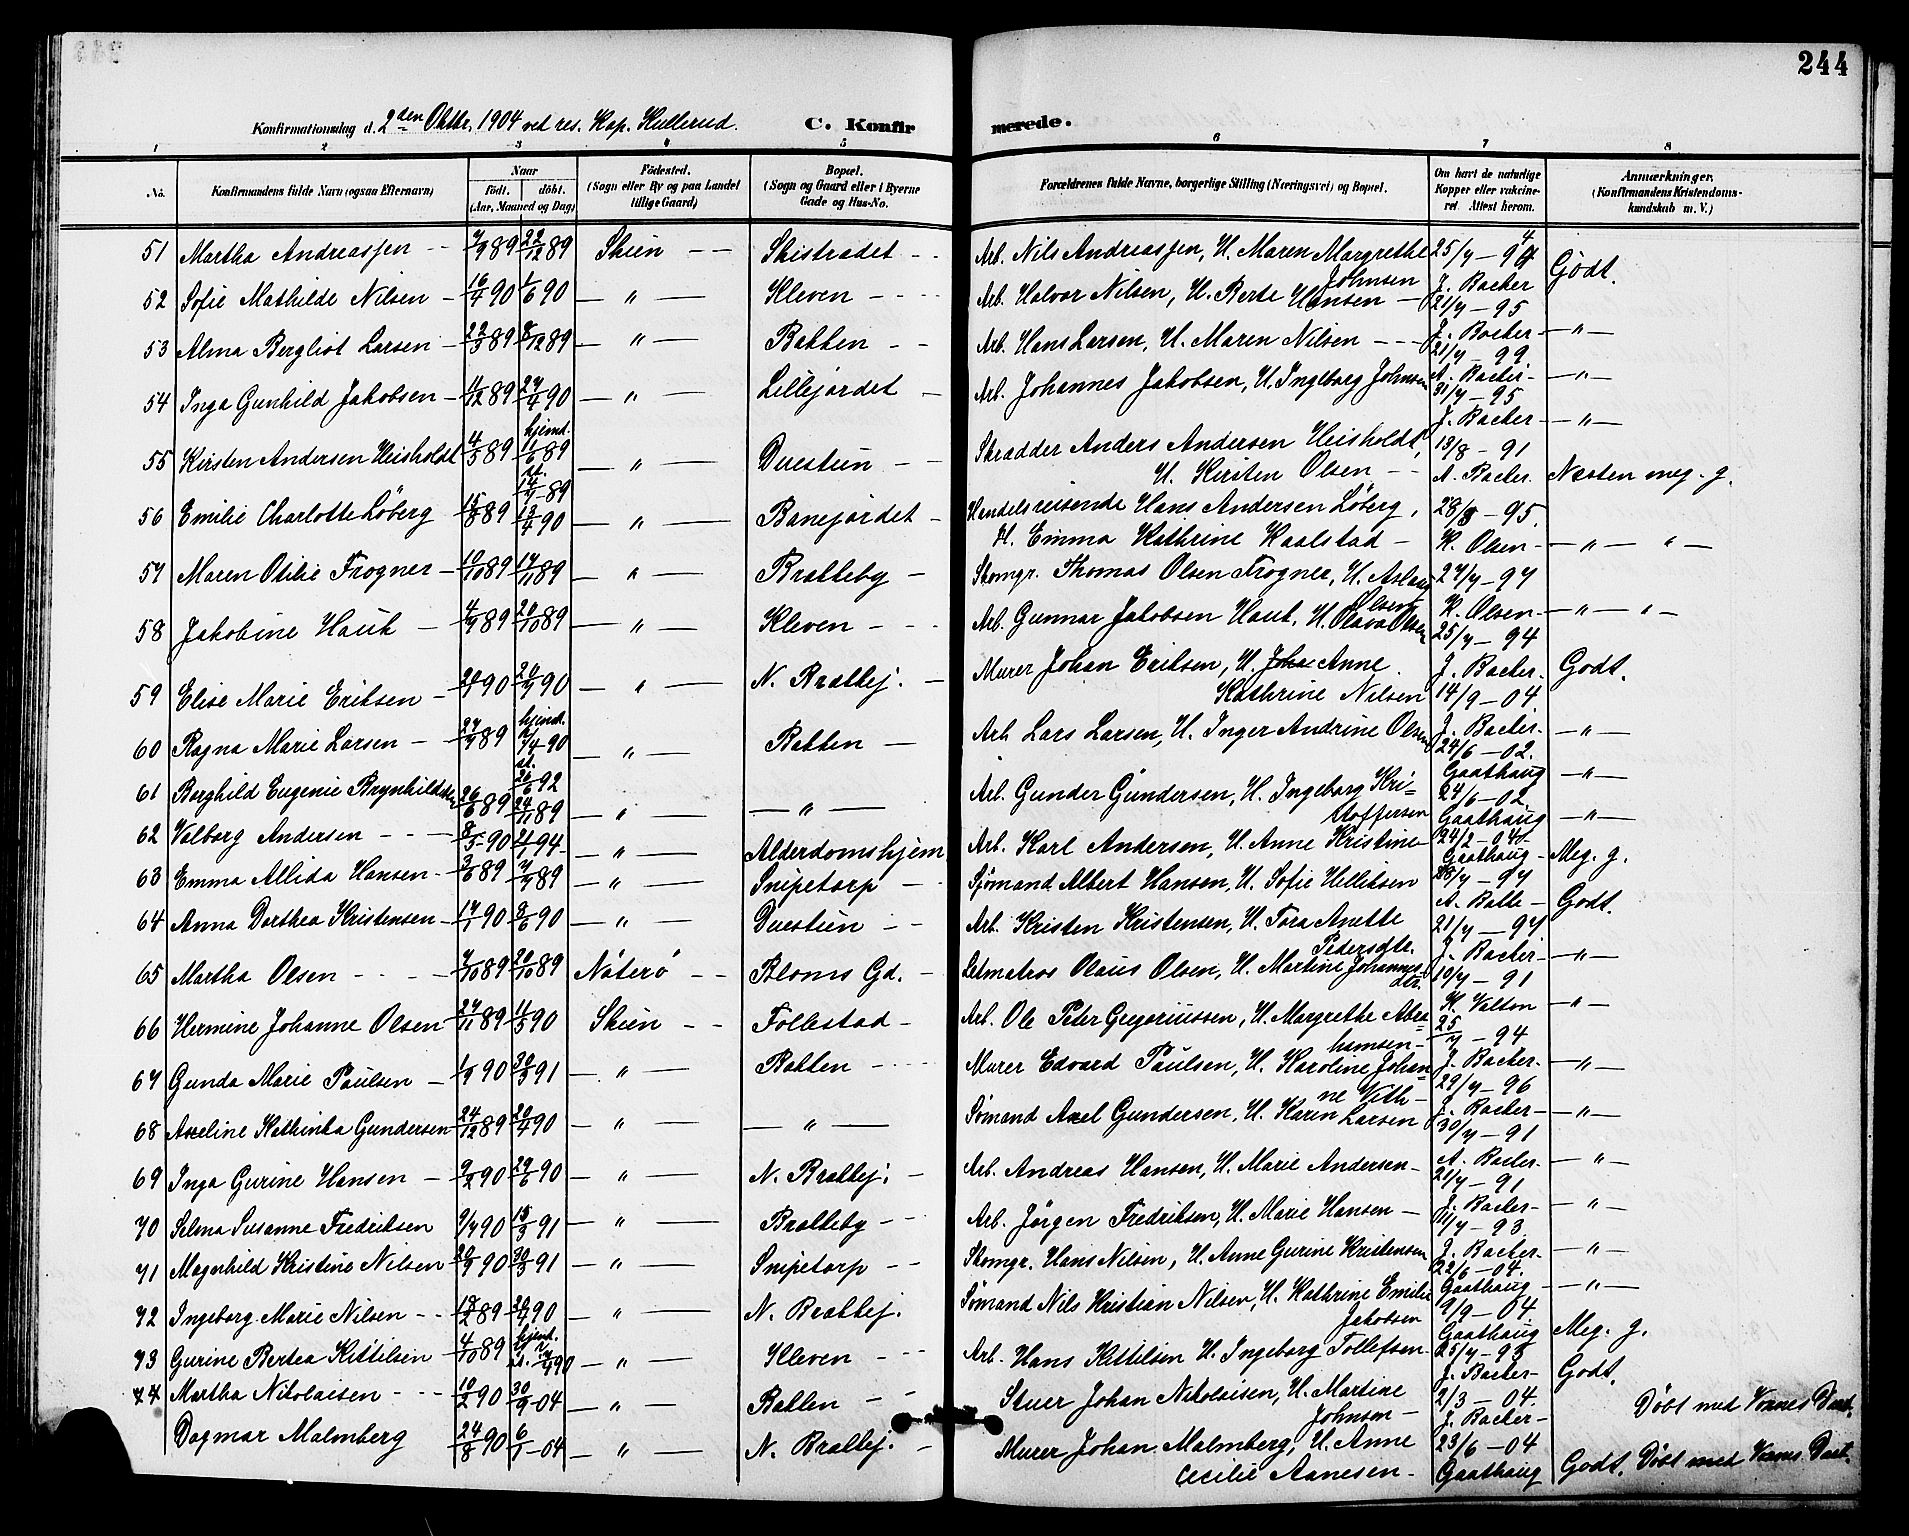 244
Konfirmationsdag d. 2den Oktbr. 1904 ved res. Kap. Hullerud. C. Konfirmerede.
1 2 3 4 5 6 7 8
No. Konfirmandens fulde Navn (ogsaa Efternavn) Naar födt. döbt. (Aar, Maaned og Dag) Födested. (Sogn eller By og paa Landet tillige Gaard) Bopæl. (Sogn og Gaard eller i Byerne Gade og Hus-No. Forældrenes fulde Navne, borgerlige Stilling (Næringsvei) og Bopæl. Om havt de naturlige Kopper eller vakcineret. Attest herom. Anmærkninger. (Konfirmandens Kristendomskundskab m. V.)
51 Martha Andreassen 7/9 89 22/12 89 Skien Skistrædet Arb. Nils Andreassen, H. Maren Margrethe Johnsen 25/7 - 94 J. Backer Godt.
52 Sofie Mathilde Nilsen 16/4 90 1/6 90 — " — Kleven Arb. Halvor Nilsen, H. Berte Hansen 21/7 - 95 J. Backer — " —
53 Alma Bergliot Larsen 22/3 89 8/12 89 — " — Bakken Arb. Hans Larsen, H. Maren Nilsen 21/7 - 99 A. Backer — " —
54 Inga Gunhild Jakobsen 11/12 89 27/4 90 — " — Lillejordet Arb. Johannes Jakobsen, H. Ingeborg Johnsen 31/7 - 95 J. Backer — " —
55 Kirsten Andersen Heisholdt 4/5 89 hjemd. 11/6 89 st. 14/7 - 89 — " — Duestien Skrædder Anders Andersen Heisholdt, H. Kirsten Olsen 13/8 - 91 A. Backer. Næsten meg. g.
56 Emilie Charlotte Löberg 15/8 89 13/4 90 — " — Banejordet Handelsreisende Hans Andersen Löberg, H. Emma Kathrine Kaalstad 28/8 - 95. K. Olsen — " — " —
57 Maren Otilie Frogner 10/10 89 17/11 89 — " — Bratteby Skomgr. Thomas Olsen Frogner, H. Aslaug Olsen 27/7 - 97 K. Olsen — " — " —
58 Jakobine Hauk 4/9 89 20/10 89 — " — Kleven Arb. Gunnar Jakobsen Hauk, H. Olava Olsen 25/7 - 94 J. Backer Godt.
59 Elise Marie Eriksen 90 90 — " — N. Brattej. Murer Johan Eriksen, H. Anne Kathrine Nilsen 14/9 - 04 J. Backer — " —
60 Ragna Marie Larsen 27/9 89 hjemd. 90 st. 26/6 92 — " — Bakken Arb. Lars Larsen, H. Inger Andrine Olsen 24/6 - 02. Gaathaug — " —
61 Borghild Eugenie Brynhildsen 26/6 89 24/11 89 — " — — " — Arb. Gunder Gundersen, H. Ingeborg Kristoffersen 24/6 - 02 Gaathaug — " —
62 Valborg Andersen 8/5 - 90 94 — " — Alderdomshjem Arb. Karl Andersen, H. Anne Kristine 24/2 - 04 Gaathaug Meg. g.
63 Emma Allida Hansen 3/6 89 7/7 89 — " — Snipetorp Sjömand Albert Hansen, H. Sofie Helliksen 28/7 - 97 A. Balle Godt.
64 Anna Dorthea Kristensen 17/1 90 8/6 90 — " — Duestien Arb. Kristen Kristensen, H. Tora Anette Pedersdtr. 21/7 - 97 J. Backer — " —
65 Martha Olsen 7/10 89 20/10 89 Nöterö Bloms Gd. Letmatros Olaus Olsen, H. Martine Johannesdtr. 10/7 - 91 K. Velton — " —
66 Hermine Johanne Olsen 27/11 89 11/5 90 Skien Follestad Arb. Ole Peter Gregoriussen, H. Margrethe Abrahamsen 25/7 - 94 J. Backer — " —
67 Gunda Marie Paulsen 1/9 90 30/3 91 — " — Bakken Murer Edvard Paulsen, H. Karoline Johanne Vith 29/7 - 96 J. Backer — " —
68 Axeline Kathinka Gundersen 24/12 89 20/4 90 — " — — " — Sömand Axel Gundersen, H. Karin Larsen 30/7 - 91 A. Backer — " —
69 Inga Gurine Hansen 9/2 90 29/6 90 — " — N. Brattej. Arb. Andreas Hansen, H. Marie Andersen 21/7 - 91 J. Backer — " —
70 Selma Susanne Fredriksen 9/7 90 15/3 91 — " — Bratteby Arb. Jörgen Fredriksen, H. Marie Hansen 11/7 - 93 J. Backer — " —
71 Magnhild Kristine Nilsen 20/9 90 30/3 91 — " — Snipetorp Skomgr. Hans Nilsen, H. Anne Gurine Kristensen 22/6 - 04. Gaathaug — " —
72 Ingeborg Marie Nilsen 89 90 — " — N. Brattej. Sömand Nils Kristian Nilsen, H. Kathrine Emilie Jakobsen 9/9 - 04 Gaathaug Meg. g.
73 Gurine Bertea Kittilsen 4/10 89 hjemd. 90 — " — Kleven Arb. Hans Kittilsen H. Ingeborg Tollefsen 25/7 - 93 J. Backer Godt.
74 Martha Nikolaisen 10/2 90 30/9 - 04 — " — Bakken Stuer Johan Nikolaisen, H. Martine Johnsen 2/3 - 04. J. Backer Döbt med Voxnes Daab.
Dagmar Malmberg 24/8 90 6/1 - 04 — " — N. Brattej. Murer Johan Malmberg, H. Anne Cecilie Aanesen 23/6 - 04 Gaathaug Godt. Döbt med Voxnes Daab.